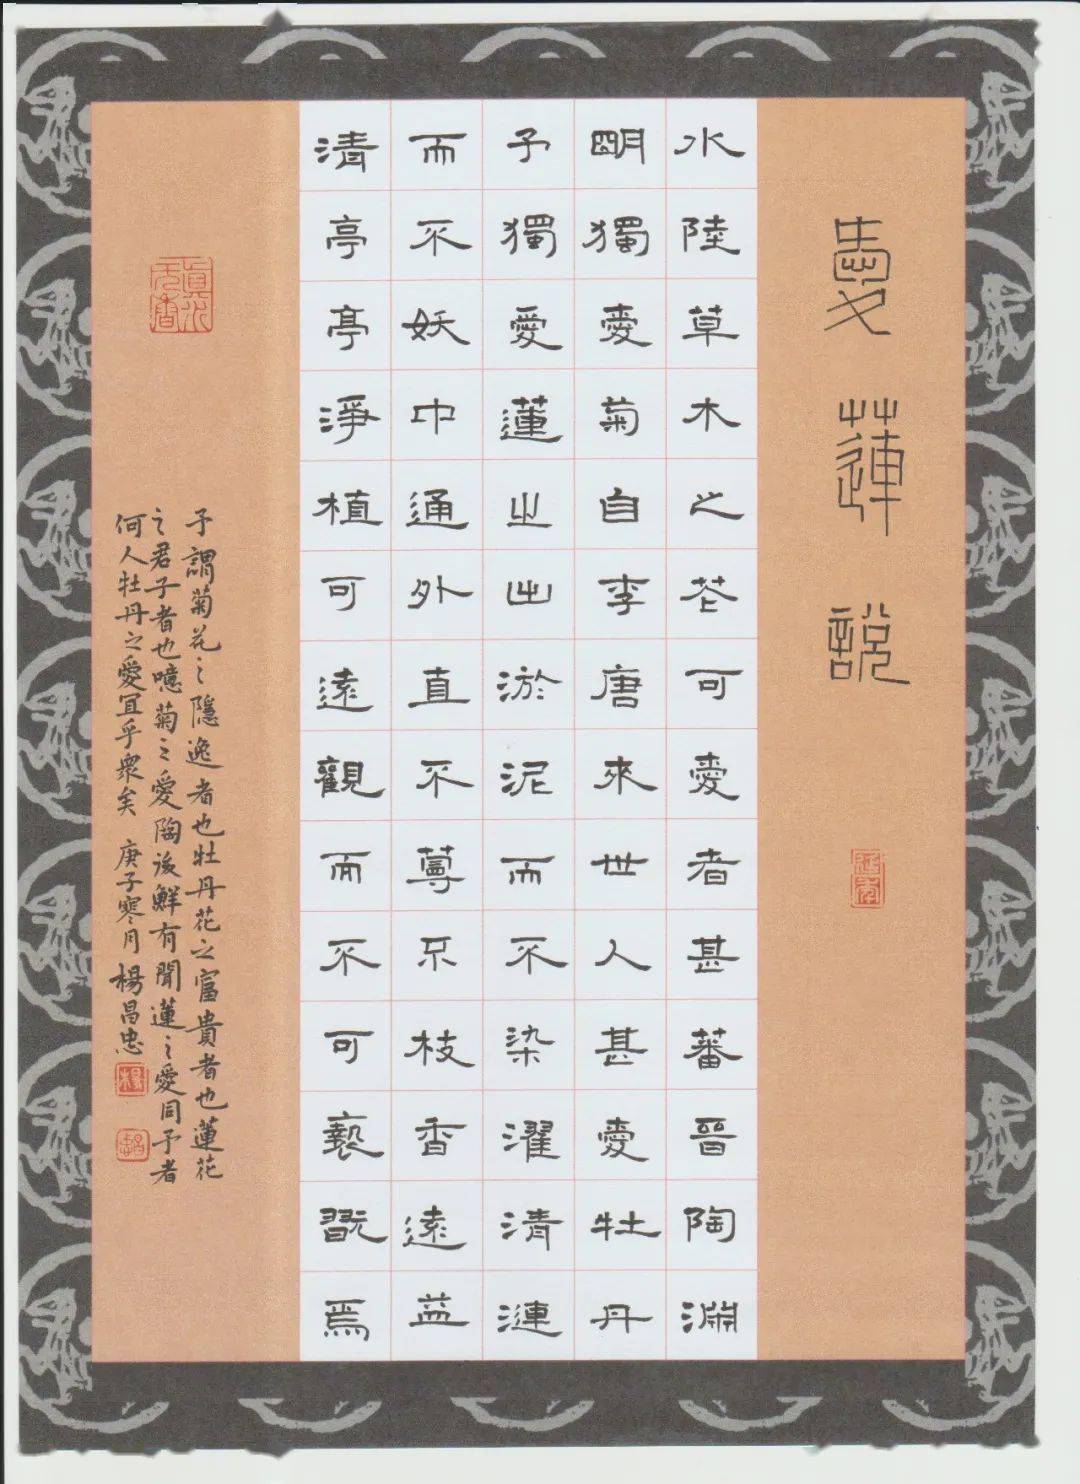 愛蓮說
延年
水陸草木之花可愛者甚蕃晉陶淵
明獨愛菊自李唐來世人甚愛牡丹
予獨愛蓮之出淤泥而不染濯清漣
而不妖中通外直不蔓不枝香遠益
清亭亭淨植可遠觀而不可褻翫焉
真水无香
予謂菊花之隱逸者也牡丹花之富貴者也蓮花
之君子者也噫菊之愛陶後鮮有聞蓮之愛同予者
何人牡丹之愛宜乎衆矣 庚子寒月 楊昌忠
楊